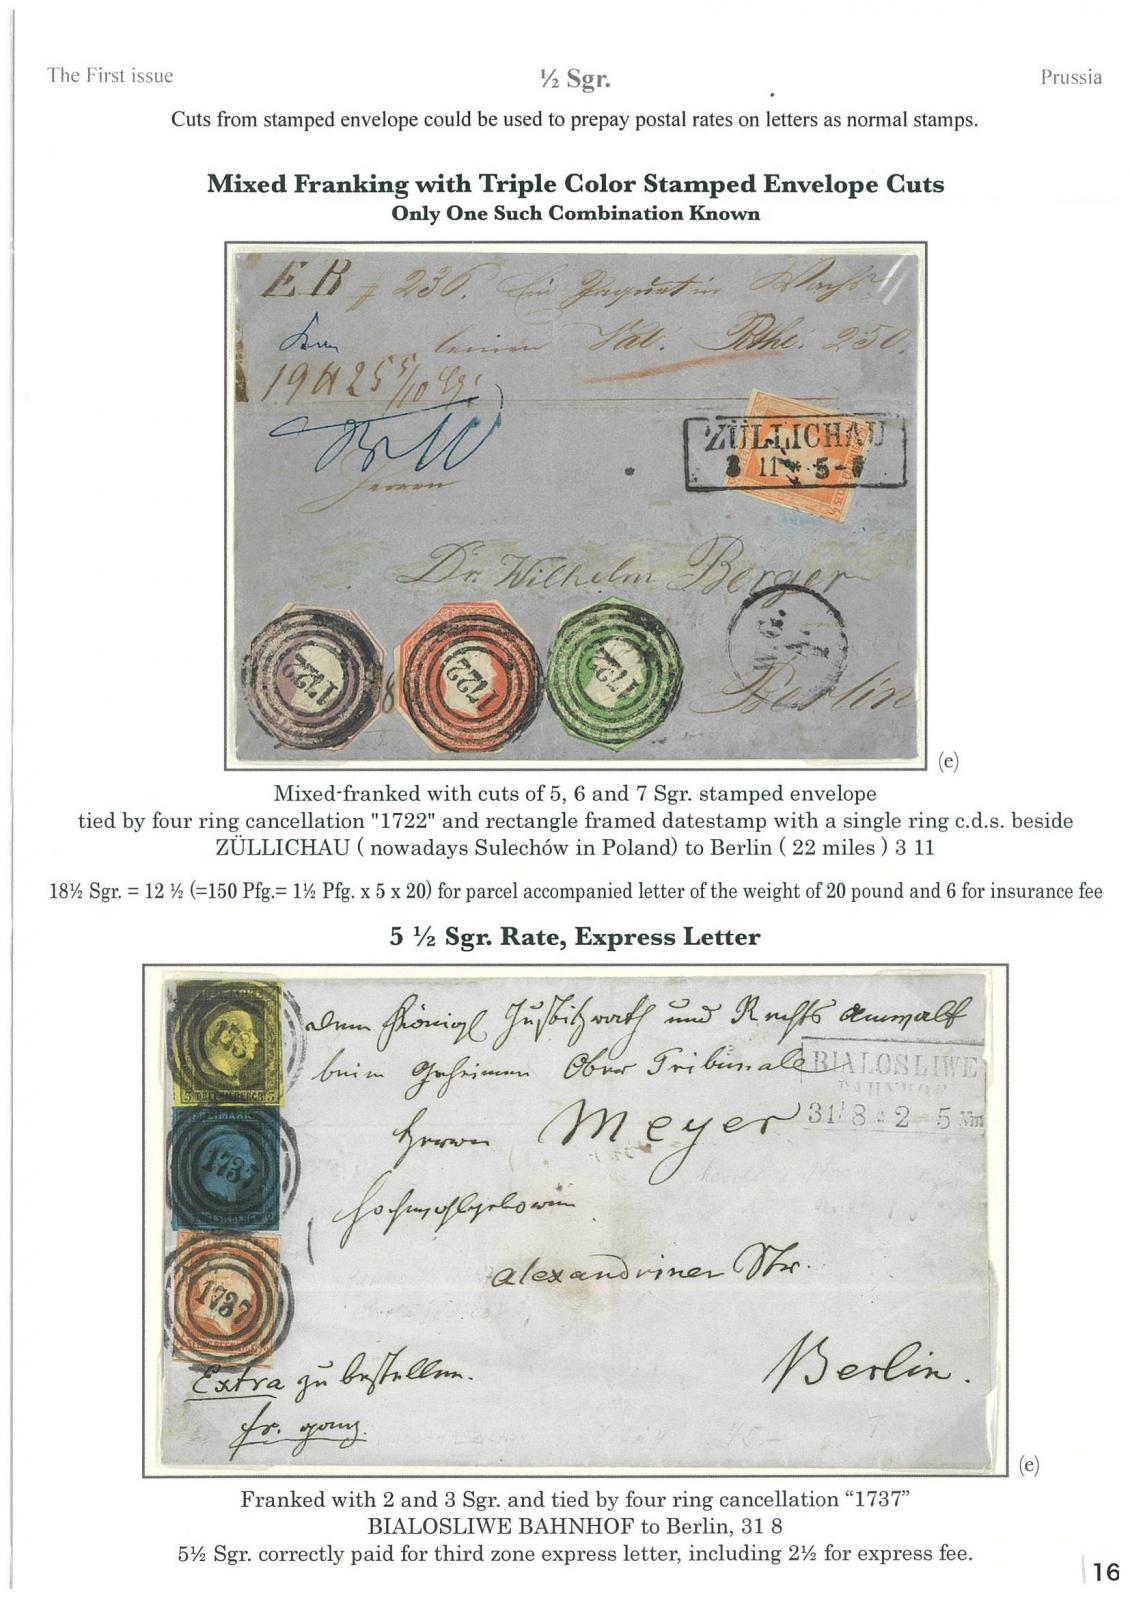 The First issue ½ Sgr. Prussia
Cuts from stamped envelope could be used to prepay postal rates on letters as normal stamps.
Mixed Franking with Triple Color Stamped Envelope Cuts
Only One Such Combination Known
E B # 236. Ein Paquet in Wachs-
leinen Val. Rthl. 250.
ZÜLLICHAU
3 11 5-
Herrn
Dr. Wilhelm Berger
Berlin
1722 1722 1722
(e)
Mixed-franked with cuts of 5, 6 and 7 Sgr. stamped envelope
tied by four ring cancellation "1722" and rectangle framed datestamp with a single ring c.d.s. beside
ZÜLLICHAU ( nowadays Sulechów in Poland) to Berlin ( 22 miles ) 3 11
18½ Sgr. = 12 ½ (=150 Pfg.= 1½ Pfg. x 5 x 20) for parcel accompanied letter of the weight of 20 pound and 6 for insurance fee
5 ½ Sgr. Rate, Express Letter
dem Königl Justizrath und Rechts Anwalt
beim Geheimen Ober Tribunale
BIALOSLIWE
BAHNHOF
31 8 2-5 Vm
Herrn Meyer
Hochwohlgeboren
Alexandriner Str.
1737
1737
Berlin.
Extra zu bestellen.
fr. ganz.
(e)
Franked with 2 and 3 Sgr. and tied by four ring cancellation “1737”
BIALOSLIWE BAHNHOF to Berlin, 31 8
5½ Sgr. correctly paid for third zone express letter, including 2½ for express fee.
16